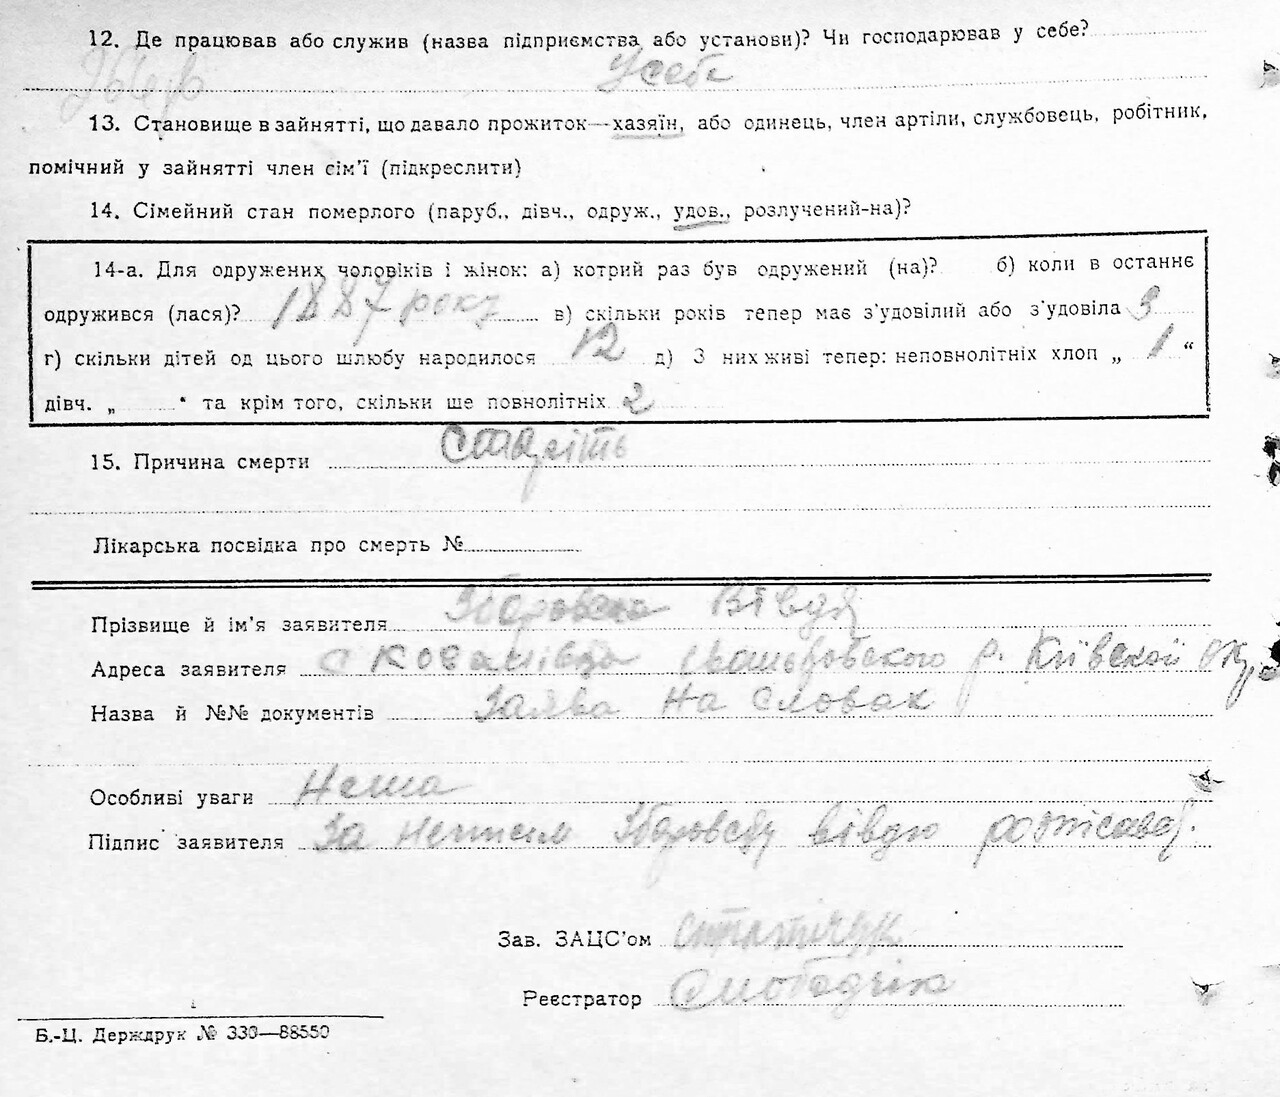 12. Де працював або служив (назва підприємства або установи)? Чи господарював у себе?
У себе
13. Становище в зайнятті, що давало прожиток—хазяїн, або одинець, член артіли, службовець, робітник,
помічний у зайнятті член сім'ї (підкреслити)
14. Сімейний стан померлого (паруб., дівч., одруж., удов., розлучений-на)?
14-а. Для одружених чоловіків і жінок: а) котрий раз був одружений (на)? б) коли в останнє
одружився (лася)? 1887 року в) скільки років тепер має з'удовілий або з'удовіла 3
г) скільки дітей од цього шлюбу народилося 12 д) З них живі тепер: неповнолітніх хлоп „ 1 “
дівч. „ “ та крім того, скільки ще повнолітніх 2
15. Причина смерти Старість
Лікарська посвідка про смерть №
Прізвище й ім'я заявителя Вівдя
Адреса заявителя с Кованівка р. Київской окр
Назва й №№ документів Заява на словах
Особливі уваги Нема
Підпис заявителя За неписм Вівдю розписавсь.
Зав. ЗАЦС'ом
Реєстратор
Б.-Ц. Держдрук № 330—88550